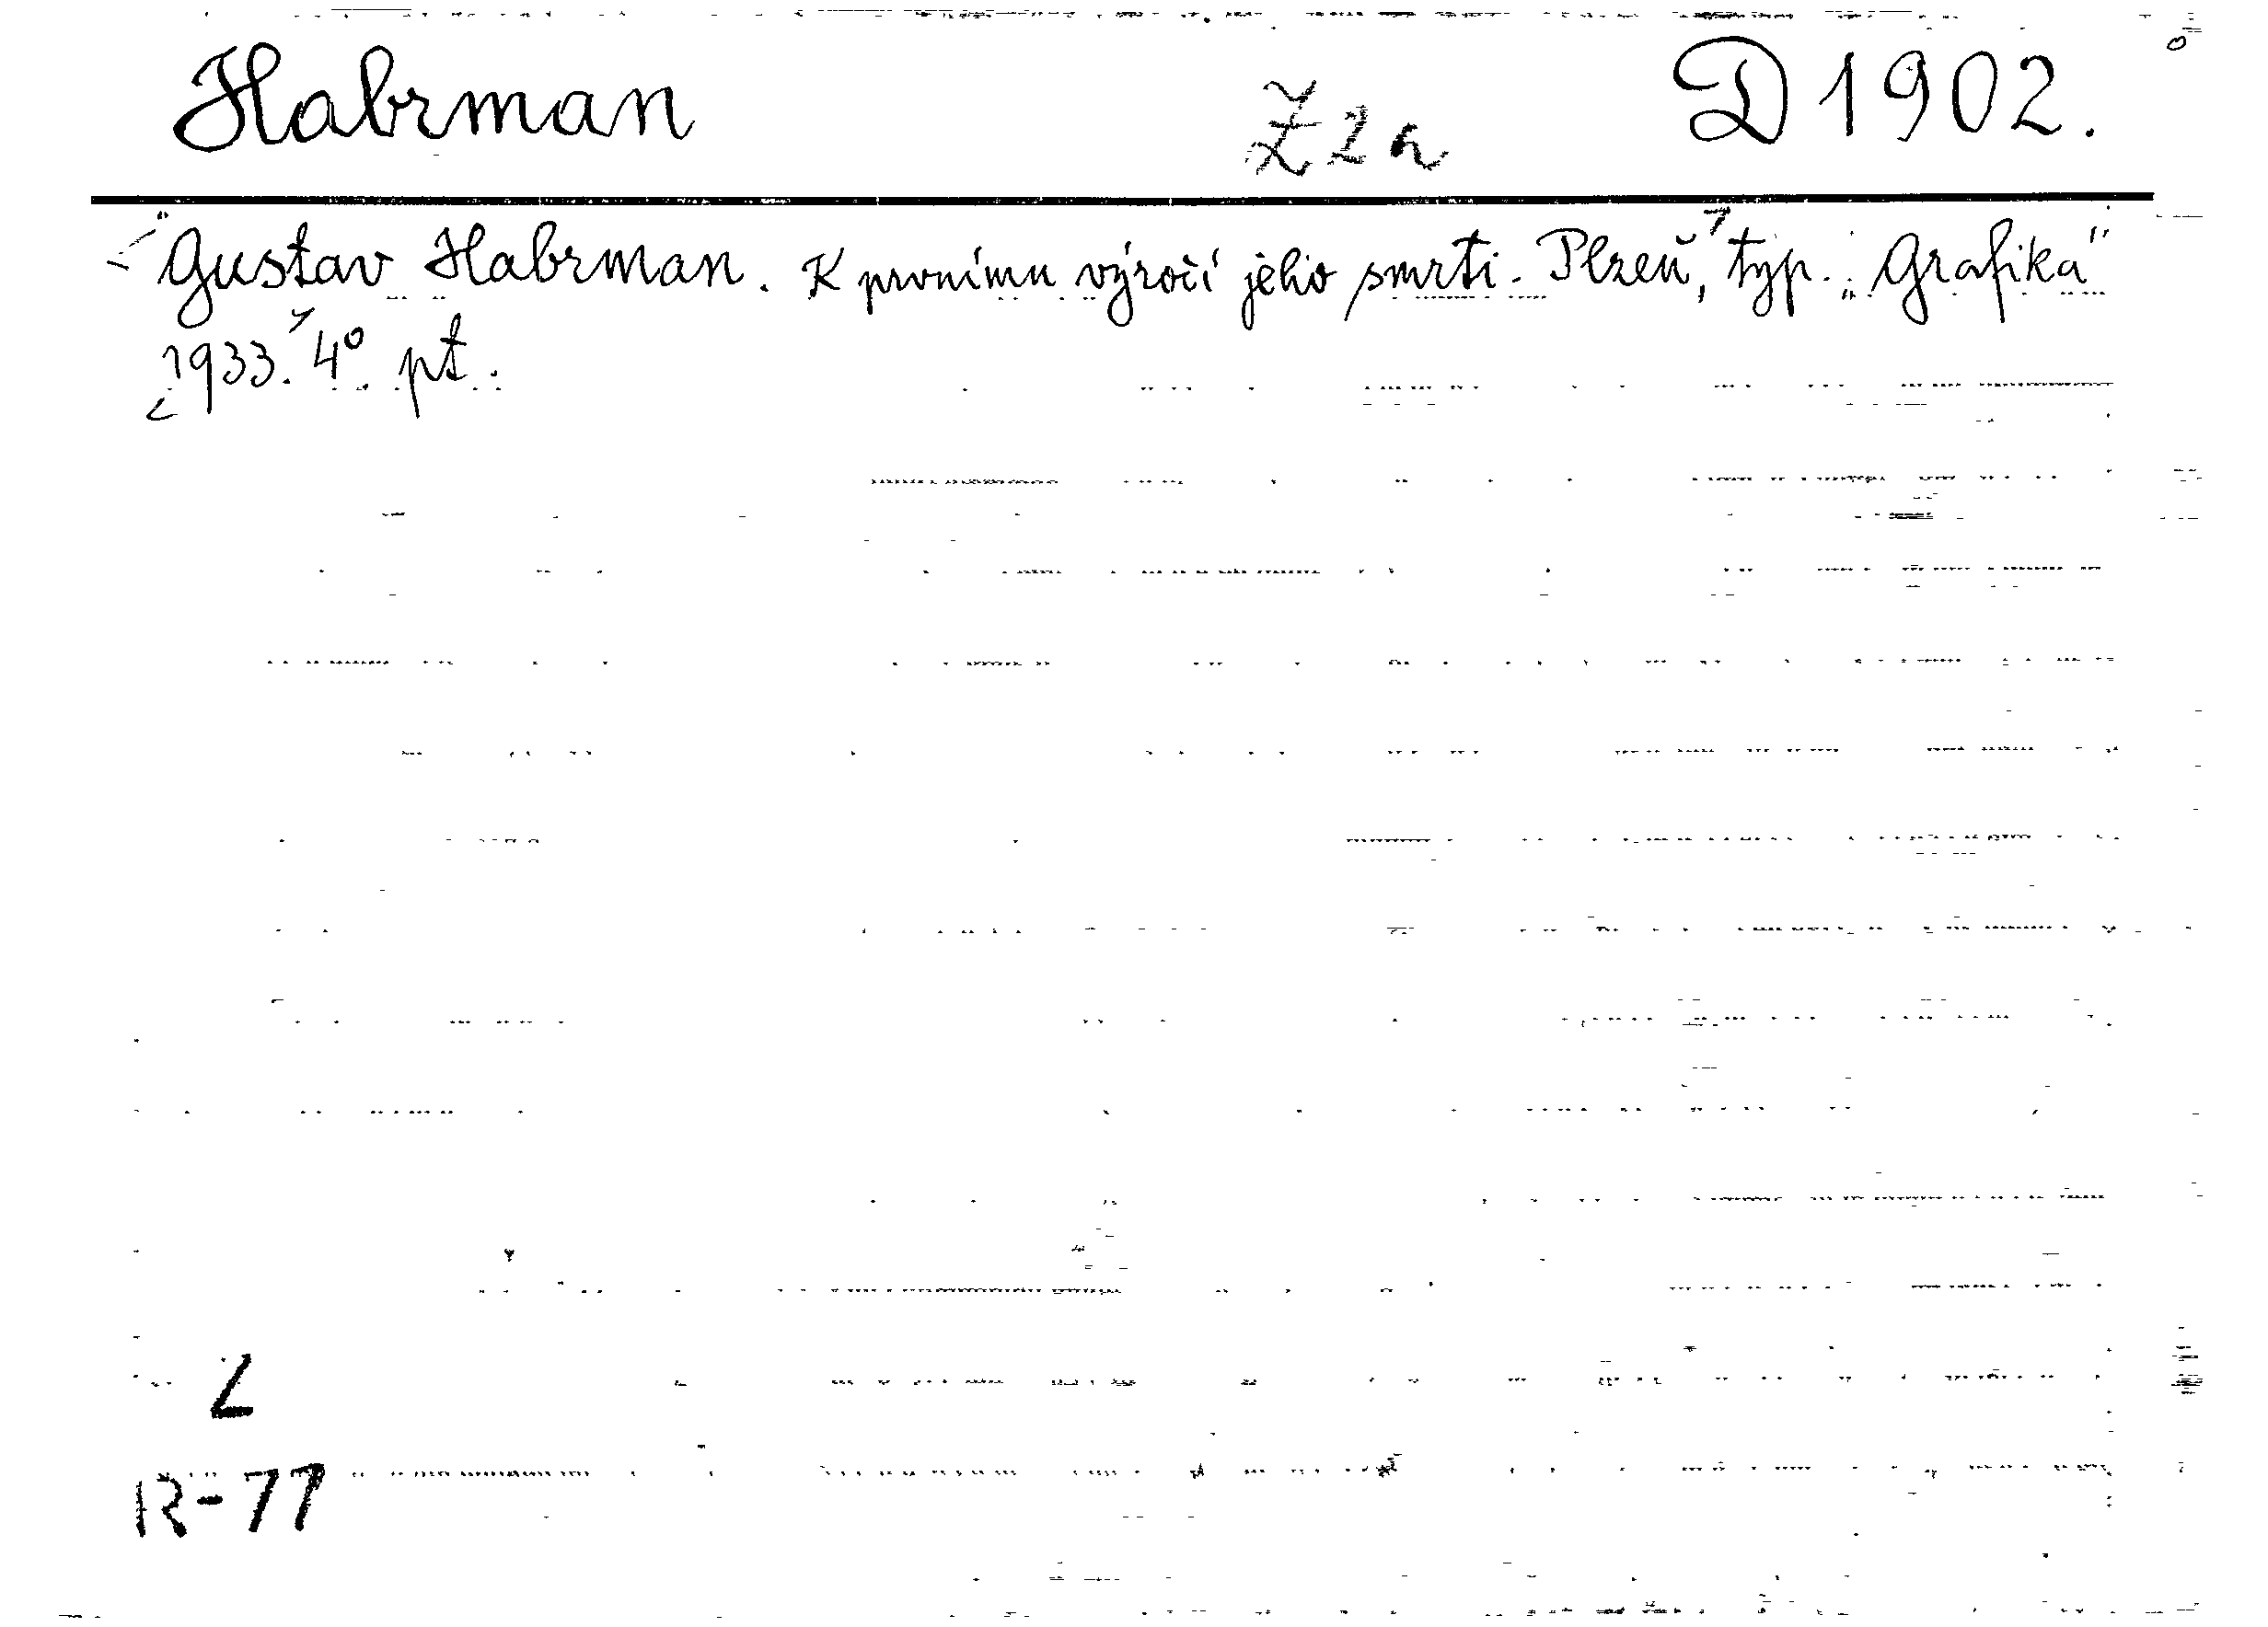 Habrman Z2a D 1902.
Gustav Habrman. K prvnímu výročí jeho smrti. Plzeň, typ. „Grafika"
1933. 4° pt.
L
R-77